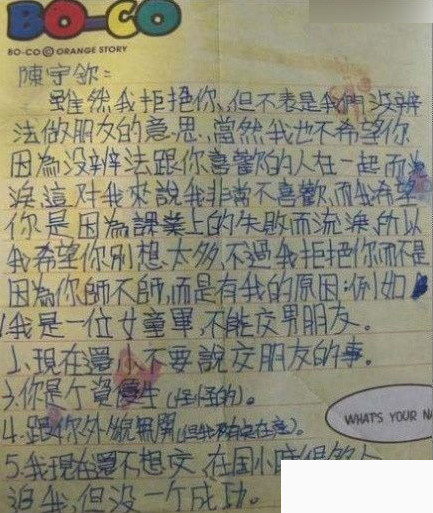 BO-CO
BO-CO © ORANGE STORY
陳宇欽：
雖然我拒絕你，但不表是我們沒辨
法做朋友的意思，當然我也不希望你
因為沒辨法跟你喜歡的人在一起而流
淚，這對我來說我非常不喜歡，而我希望
你是因為課業上的失敗而流淚，所以
我希望你別想太多，不過我拒絕你而不是
因為你師不師，而是有我的原因：例如
1我是一位女童軍，不能交男朋友。
2、現在還小不要說交朋友的事。
3、你是个資優生(怪怪的)。
4.跟你外貌無關(但我不在意)。
5.我現在還不想交，在国小時
追我，但没一个成功。
WHAT'S YOUR NA